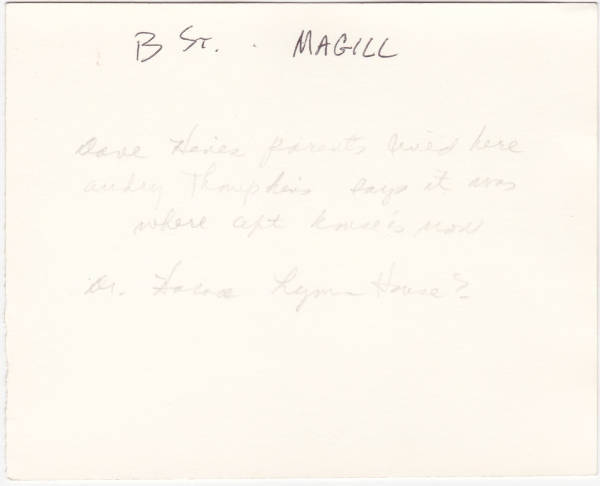 B St. . MAGILL
Dave Hines parents lived here
audrey Thompkins says it was
where apt house is now
Dr. Lyman House?